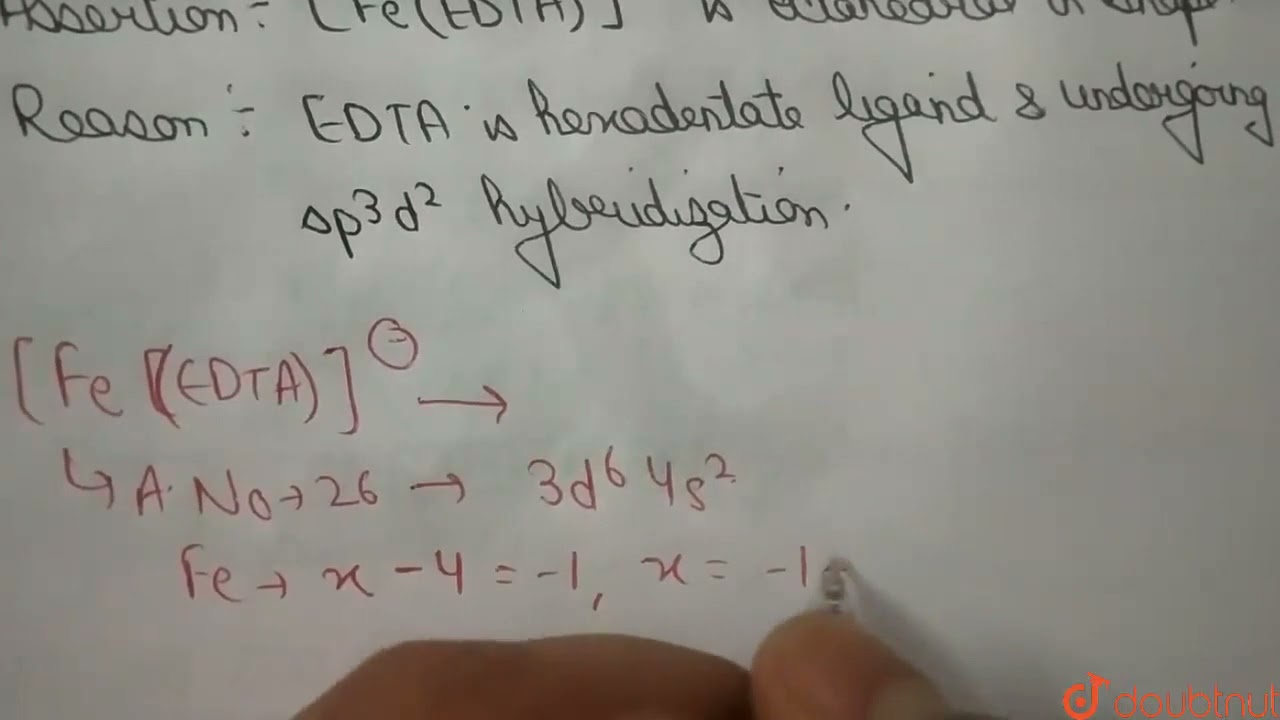 Assertion :- [Fe(EDTA)] is octahedral in shape
Reason :- EDTA is hexadentate ligand & undergoing
sp³d² hyberidization.
[Fe (EDTA)]⊖ →
↳ A. No → 26 → 3d⁶ 4s²
Fe → x - 4 = -1, x = -1
doubtnut